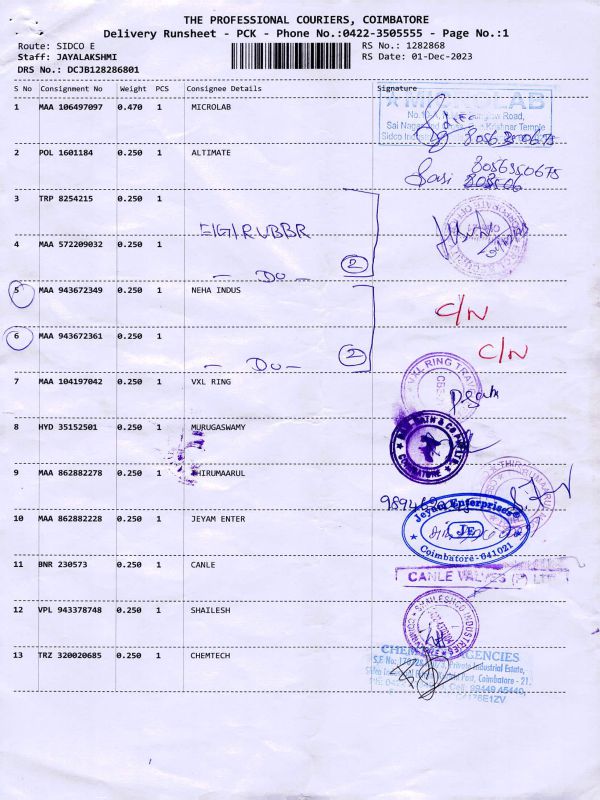 THE PROFESSIONAL COURIERS, COIMBATORE
Delivery Runsheet - PCK - Phone No.:0422-3505555 - Page No.:1
Route: SIDCO E
RS No.: 1282868
Staff: JAYALAKSHMI
RS Date: 01-Dec-2023
DRS No.: DCJB128286801
S No Consignment No Weight PCS Consignee Details Signature
1 MAA 106497097 0.470 1 MICROLAB
MICROLAB
Road,
Sai Nagar
Temple
8056350675
2 POL 1601184 0.250 1 ALTIMATE
Sasi 8056350675
3 TRP 8254215 0.250 1
EIGI RUBBR
4 MAA 572209032 0.250 1
- Do - 2
5 MAA 943672349 0.250 1 NEHA INDUS
C/N
6 MAA 943672361 0.250 1
C/N
- Do - 2
7 MAA 104197042 0.250 1 VXL RING
VXL RING
8 HYD 35152501 0.250 1 MURUGASWAMY
COIMBATORE
9 MAA 862882278 0.250 1 THIRUMAARUL
10 MAA 862882228 0.250 1 JEYAM ENTER
Jeyam Enterprises
JE
Coimbatore-641021
11 BNR 230573 0.250 1 CANLE
CANLE VALVES (P) LTD
12 VPL 943378748 0.250 1 SHAILESH
SHAILESHCO INDUSTRIES
13 TRZ 320020685 0.250 1 CHEMTECH
AGENCIES
Private Industrial Estate,
Post, Coimbatore - 21.